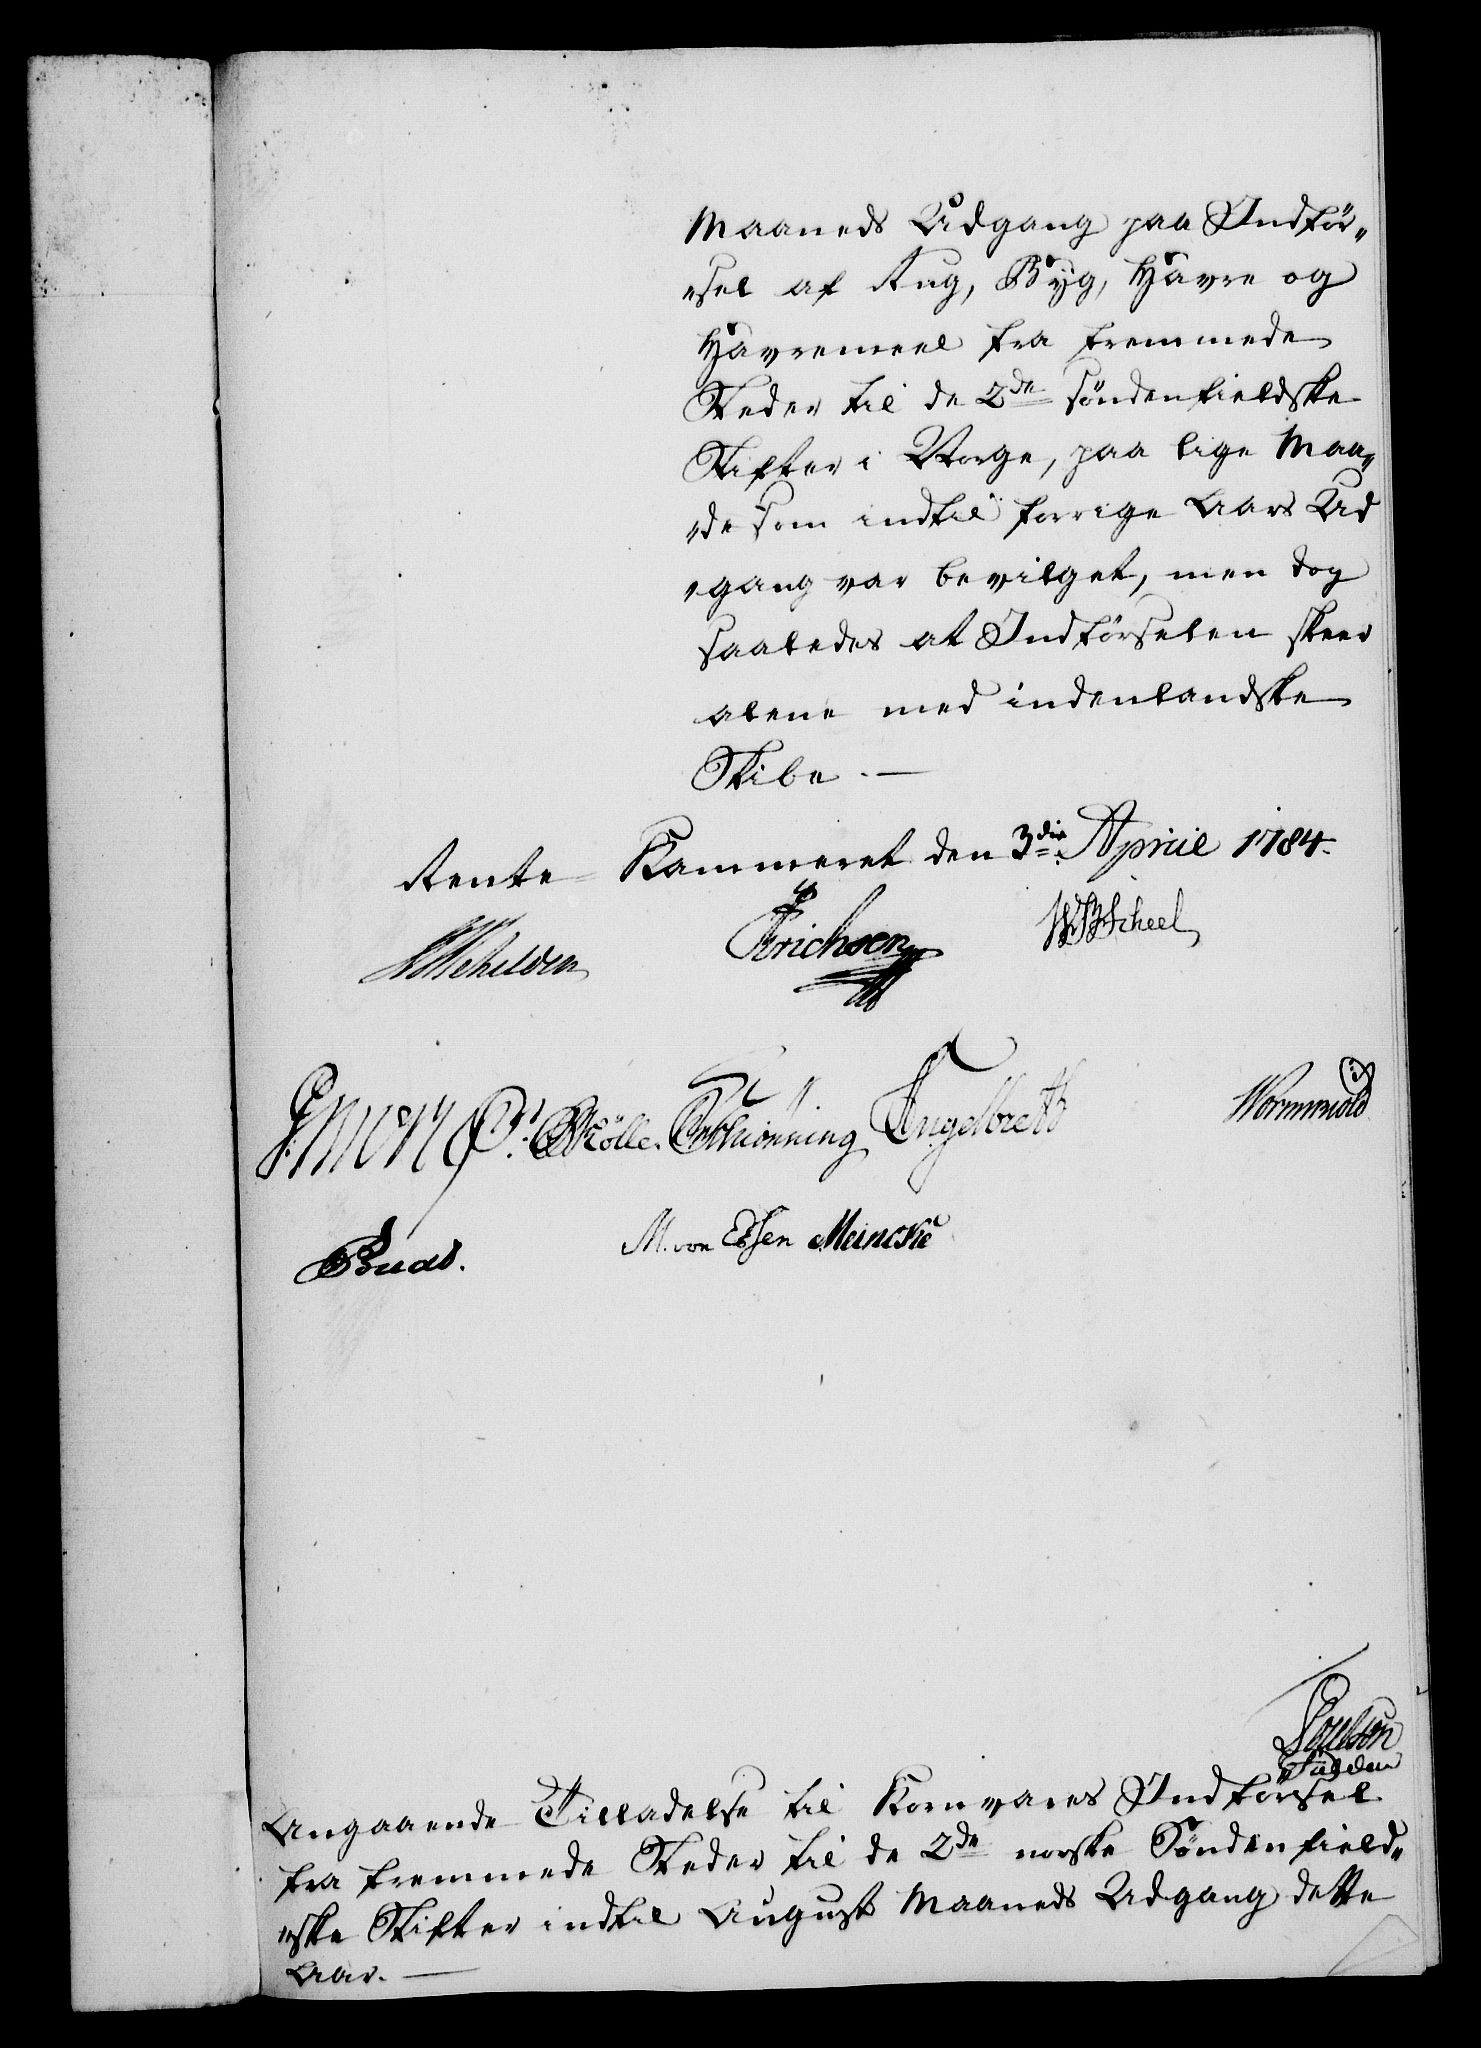 Maaneds Udgang paa Indför„
„sel af Rug, Byg, Havre og
Havremeel fra fremmede
Steder til de 2de söndenfieldske
Stifter i Norge, paa lige Maa„
„de som indtil forrige Aars Ud
„gang var bevilget, men dog
saaledes at Indförselen skeer
alene med indenlandske
Skibe. —
Rente-Kammeret den 3die April 1784.
Erichsen WBScheel
Mölle. Schiönning Engelbreth Wormwold
M. von Essen Meincke
Angaaende Tilladelse til Kornvares Indförsel
fra fremmede Steder til de 2de norske Söndenfield„
„ske Stifter indtil Augusts Maaneds Udgang dette
Aar. —